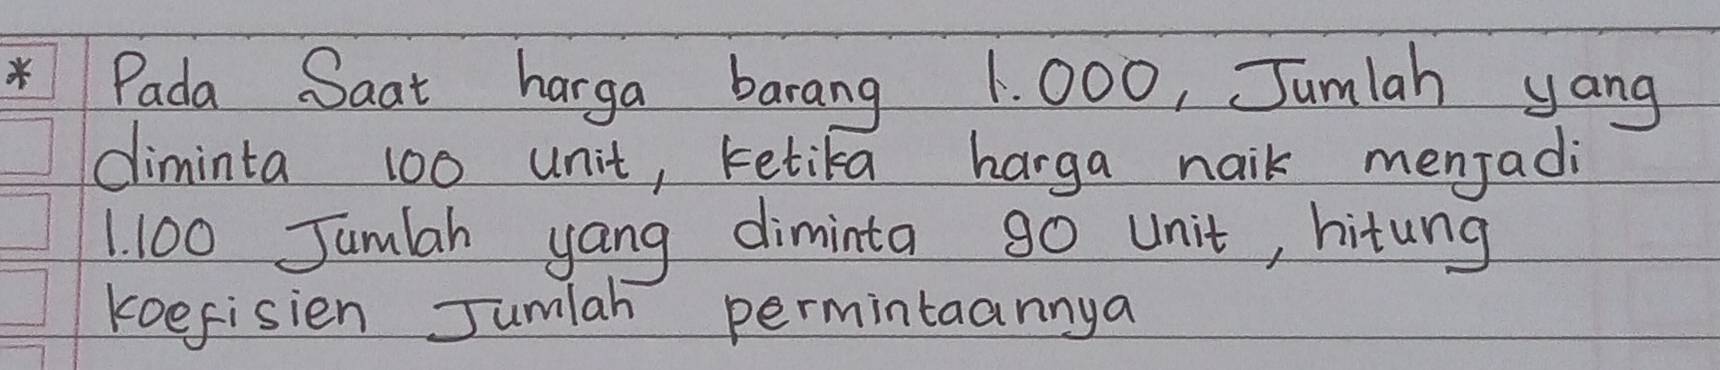 * Pada Saat harga barang 1.000, Jumlah yang
diminta 100 unit, ketika harga naik menjadi
1.100 Jumlah yang diminta 90 unit, hitung
koefisien Jumlah permintaannya